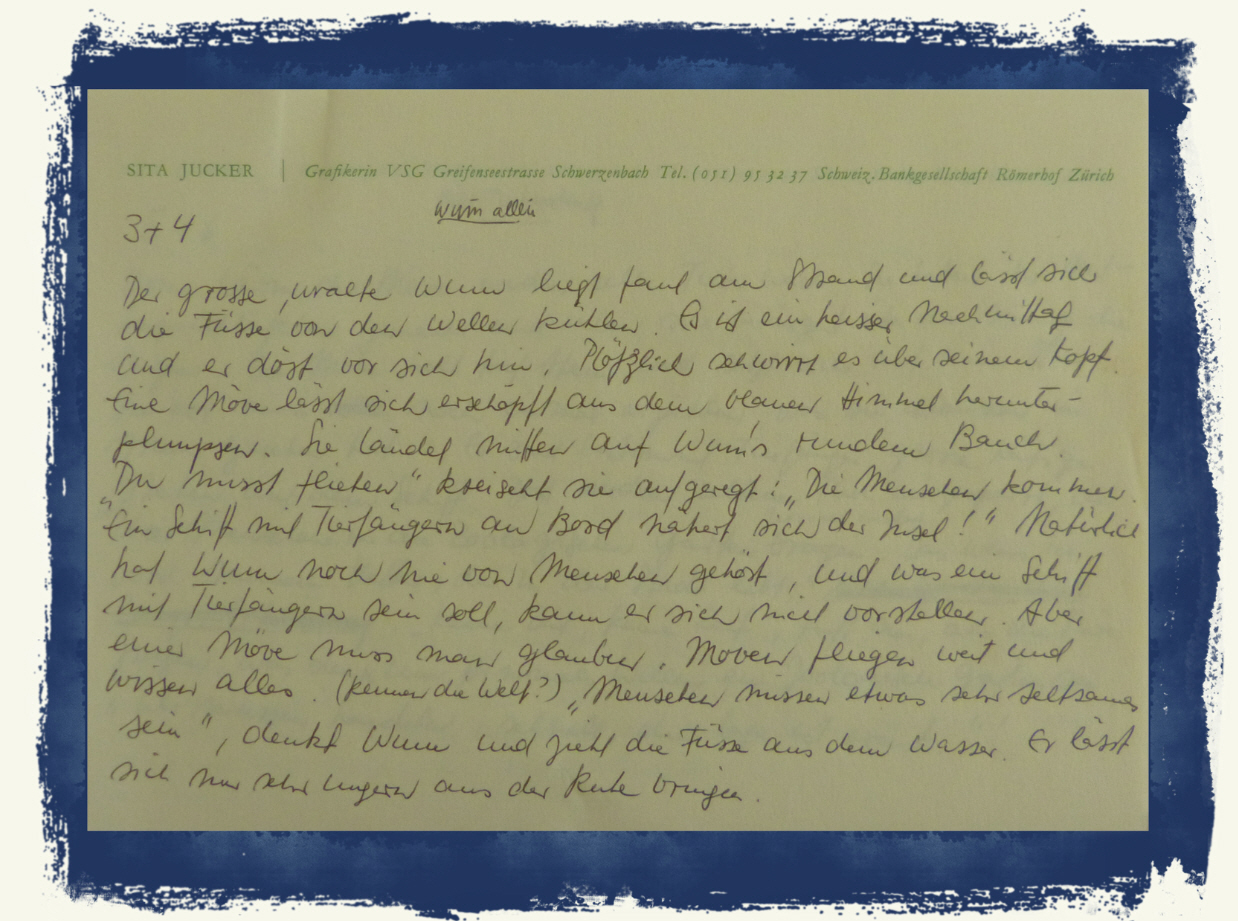 SITA JUCKER | Grafikerin VSG Greifenseestrasse Schwerzenbach Tel. (051) 95 32 37 Schweiz. Bankgesellschaft Römerhof Zürich
Wum allein
3+4
Der grosse, uralte Wum liegt faul am Strand und lässt sich
die Füsse von den Wellen kühlen. Es ist ein heisser Nachmittag
und er döst vor sich hin. Plötzlich schwirrt es über seinem Kopf.
Eine Möve lässt sich erschöpft aus dem blauen Himmel herunter-
plumpsen. Sie landet mitten auf Wum's rundem Bauch.
"Du musst fliehen" kreischt sie aufgeregt: „Die Menschen kommen.
Ein Schiff mit Tierfängern an Bord nähert sich der Insel!" Natürlich
hat Wum noch nie von Menschen gehört, und was ein Schiff
mit Tierfängern sein soll, kann er sich nicht vorstellen. Aber
einer Möve muss man glauben. Möven fliegen weit und
wissen alles. (kennen die Welt?) „Menschen müssen etwas sehr seltsames
sein", denkt Wum und zieht die Füsse aus dem Wasser. Er lässt
sich nur sehr ungern aus der Ruhe bringen.